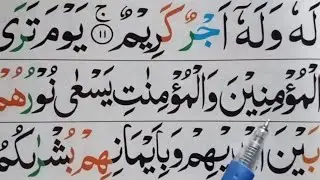 لَهٗ وَلَهٗۤ اَجْرٌ كَرِیْمٌ ۚ﴿۱۱﴾ یَوْمَ تَرَی
الْمُؤْمِنِیْنَ وَالْمُؤْمِنٰتِ یَسْعٰی نُوْرُهُمْ
بَیْنَ اَیْدِیْهِمْ وَبِاَیْمَانِهِمْ بُشْرٰىكُمُ